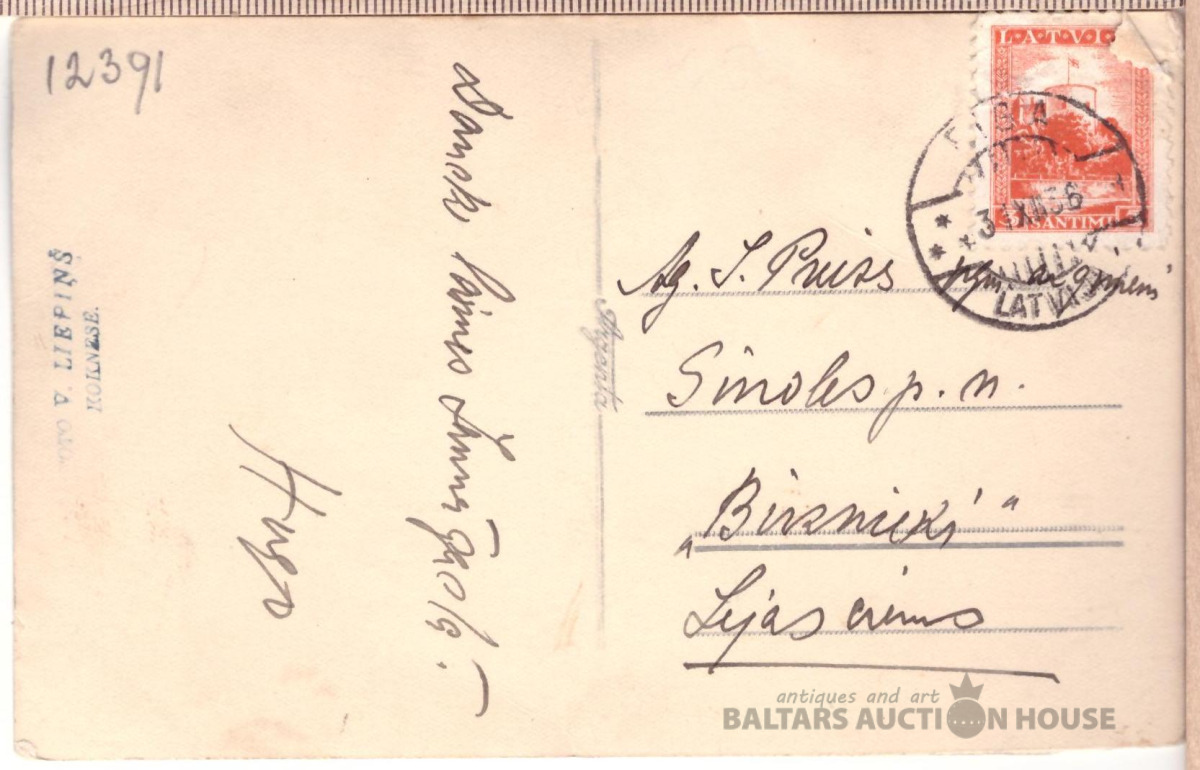 12391
FOTO V. LIEPIŅŠ
KOKNESE.
Daudz laimes Jaunā gadā!
Hugo
Agenta
LATVI
3 SANTIMI
RIGA
31 XII 36
LATVIJA
Ag. J. Preiss
Sinoles p. n.
„Birznieki"
Lejasciems
antiques and art
BALTARS AUCTION HOUSE